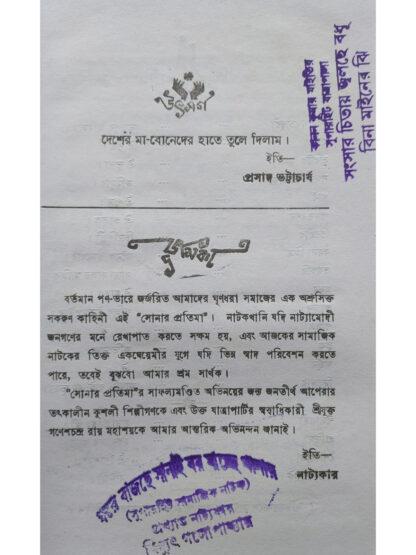 উৎসর্গ
দেশের মা-বোনেদের হাতে তুলে দিলাম।
ইতি—
প্রসাদ ভট্টাচার্য
সুপারহিট যাত্রাপালা
সংসার চিতায় জ্বলছে বধূ
বিনা মাইনের ঝি
ভূমিকা
বর্তমান পণ-ভারে জর্জরিত আমাদের ঘুণধরা সমাজের এক অশ্রুসিক্ত
সকরুণ কাহিনী এই “সোনার প্রতিমা”। নাটকখানি যদি নাট্যামোদী
জনগণের মনে রেখাপাত করতে সক্ষম হয়, এবং আজকের সামাজিক
নাটকের তিক্ত একঘেয়েমীর যুগে যদি ভিন্ন স্বাদ পরিবেশন করতে
পারে, তবেই বুঝবো আমার শ্রম সার্থক।
“সোনার প্রতিমা”র সাফল্যমণ্ডিত অভিনয়ের জন্য জনতীর্থ আপেরার
তৎকালীন কুশলী শিল্পীগণকে এবং উক্ত যাত্রাপার্টির স্বত্বাধিকারী শ্রীযুক্ত
গণেশচন্দ্র রায় মহাশয়কে আমার আন্তরিক অভিনন্দন জানাই।
ইতি—
নাট্যকার
বাজছে সানাই বর যাচ্ছে
(সুপারহিট সামাজিক নাটক)
প্রখ্যাত নাট্যেশ্বর
গঙ্গোপাধ্যায়